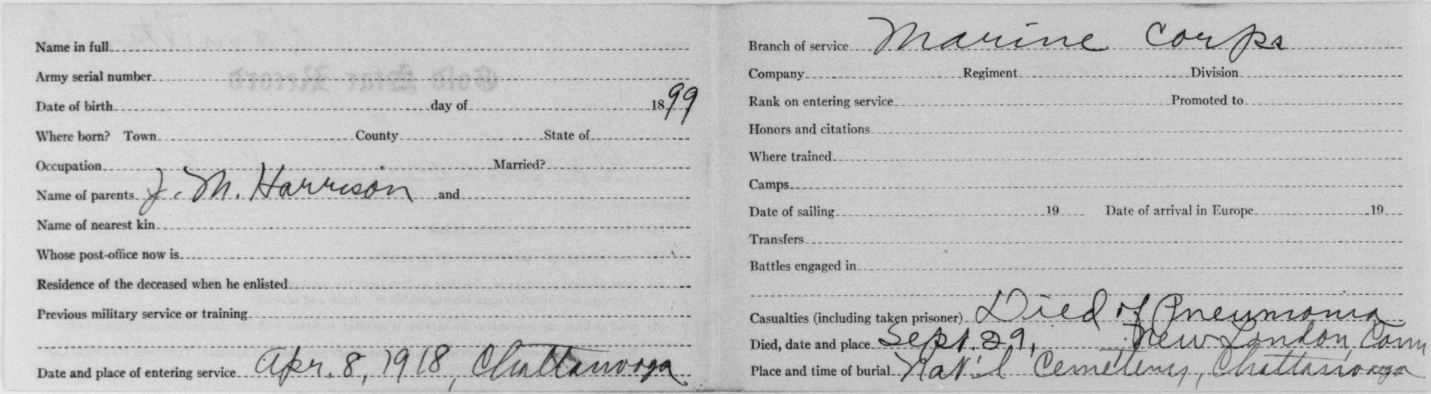 Name in full
Army serial number
Date of birth day of 1899
Where born? Town County State of
Occupation Married?
Name of parents J. M. Harrison and
Name of nearest kin
Whose post-office now is
Residence of the deceased when he enlisted
Previous military service or training
Date and place of entering service Apr. 8, 1918, Chattanooga
Branch of service Marine Corps
Company Regiment Division
Rank on entering service Promoted to
Honors and citations
Where trained
Camps
Date of sailing 19 Date of arrival in Europe 19
Transfers
Battles engaged in
Casualties (including taken prisoner) Died of Pneumonia
Died, date and place Sept. 29, New London, Conn
Place and time of burial Nat'l Cemetery, Chattanooga
Gold Star Record